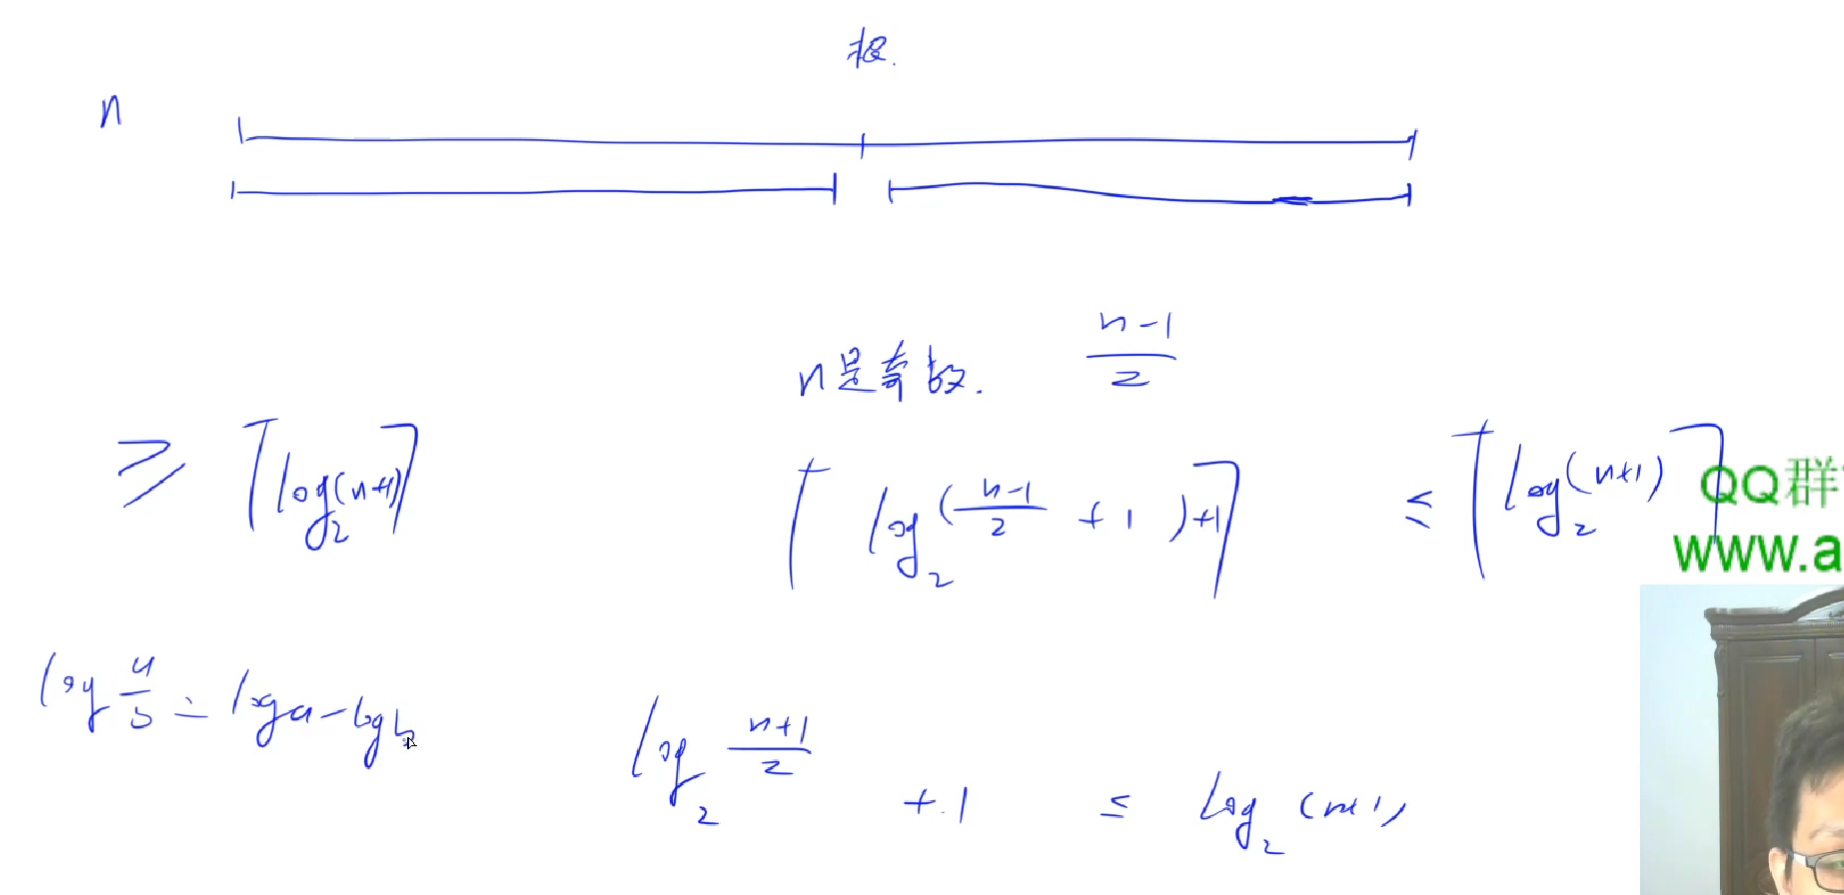 根.
n
n是奇数. \frac{n-1}{2}
≥ ⌈log₂(n+1)⌉ ⌈log₂(\frac{n-1}{2} + 1)+1⌉ ≤ ⌈log₂(n+1)⌉
QQ群
www.a
log \frac{a}{b} = log a - log b
log₂ \frac{n+1}{2} + 1 ≤ log₂(n+1)